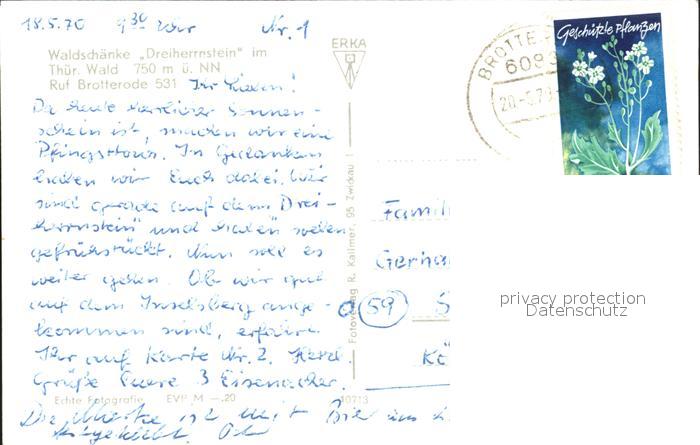 18.5.70 9³⁰ Uhr Nr. 1
Waldschänke „Dreiherrnstein" im
Thür. Wald 750 m ü. NN
Ruf Brotterode 531
Ihr Lieben!
Da heute herrlicher Sonnen-
schein ist, machen wir eine
Pfingsttour. In Gedanken
haben wir Euch dabei. Wir
sind gerade auf dem „Drei-
herrnstein" und haben soeben
gefrühstückt. Nun soll es
weiter gehen. Ob wir gut
auf dem Inselsberg ange-
kommen sind, erfahrt
Ihr auf Karte Nr. 2. Herzl.
Grüße Euere 3 Eisenacher.
Echte Fotografie EVP M –.20
10713
Die Marke ist mit Bier
ERKA
Fotoverlag R. Kallmer, 95 Zwickau
BROTTE
609
20.-5.70
Geschützte Pflanzen
Famil
Gerha
(59)
privacy protection
Datenschutz